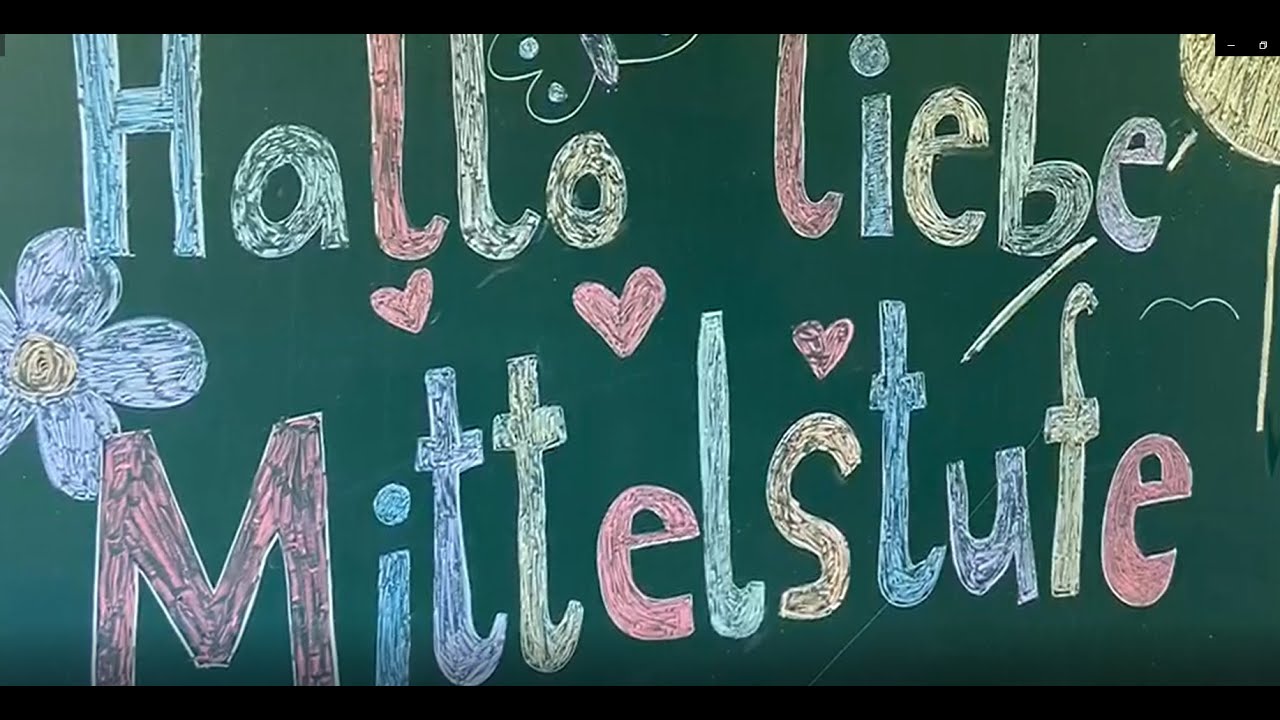 Hallo liebe
Mittelstufe